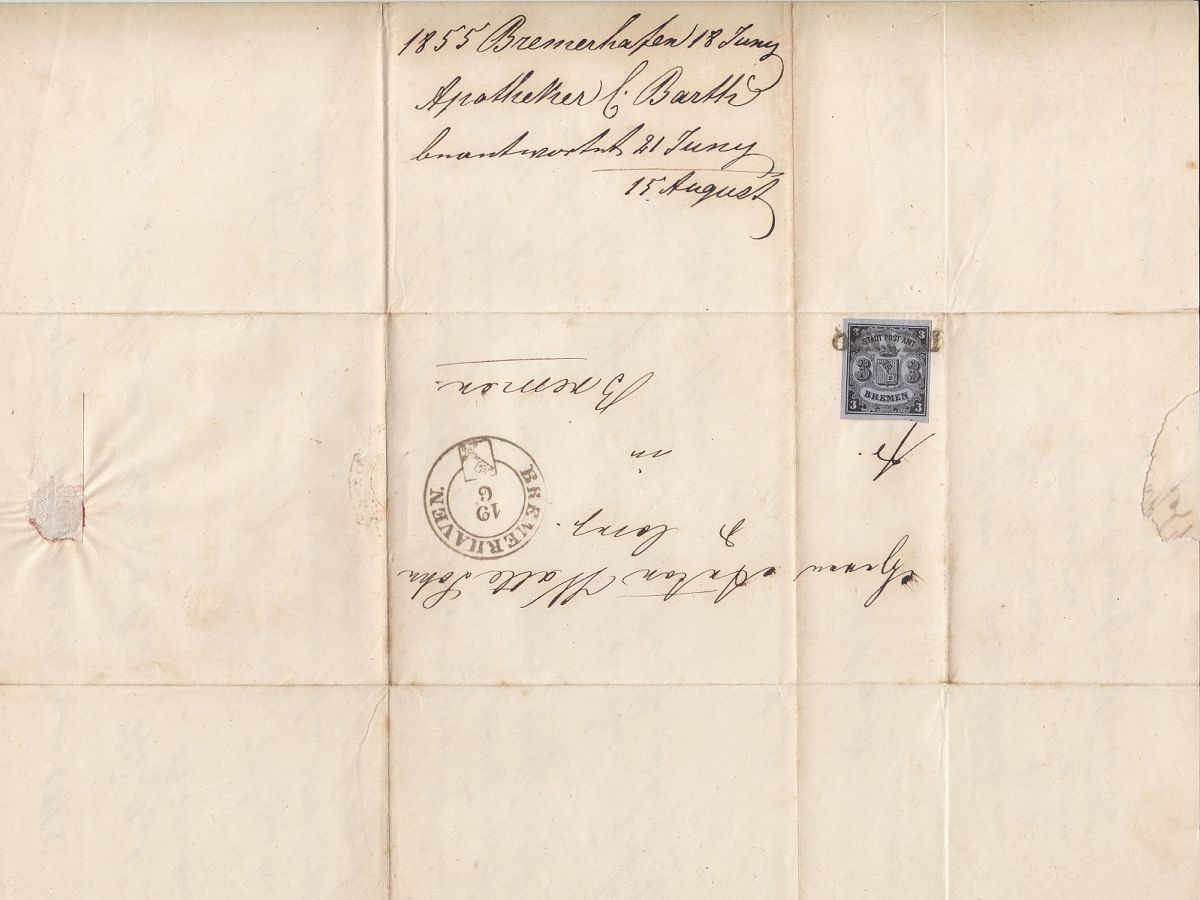 1855 Bremerhafen 18 Juny
Apotheker C. Barth
beantwortet 21 Juny
15 August
3 3
STADT POST AMT
3 3
BREMEN
3 3
Herrn Anton
in
Bremen.
BREMERHAVEN
19
6